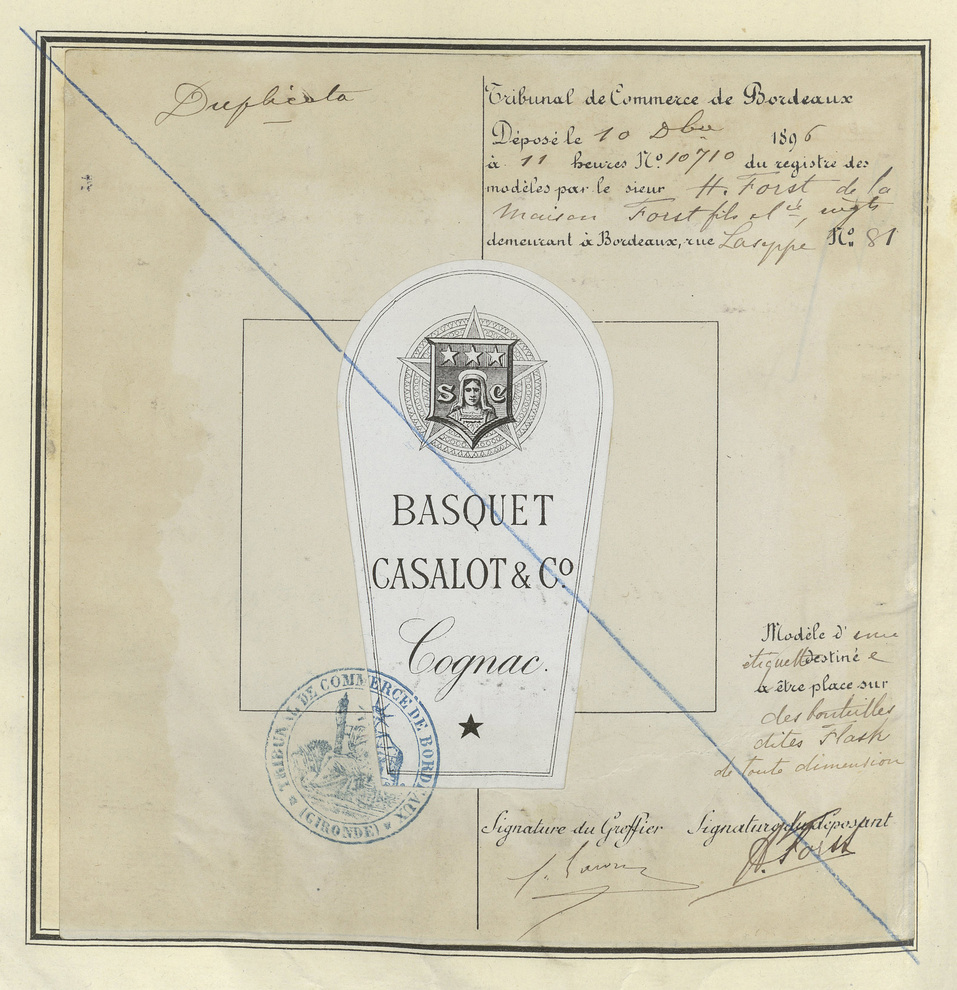 Duplicata
Tribunal de Commerce de Bordeaux
Déposé le 10 Dbre 1896
à 11 heures No 10710 du registre des
modèles par le sieur H. Forst de la
Maison Forst fils et Cie,
demeurant à Bordeaux, rue Laseppe No 81
S C
BASQUET
CASALOT & Co
Cognac.
Modèle d'une
étiquette Destiné e
à être place sur
des bouteilles
dites Flask
de toute dimension
TRIBUNAL DE COMMERCE DE BORDEAUX
(GIRONDE)
Signature du Greffier Signature du Déposant
H. Forst